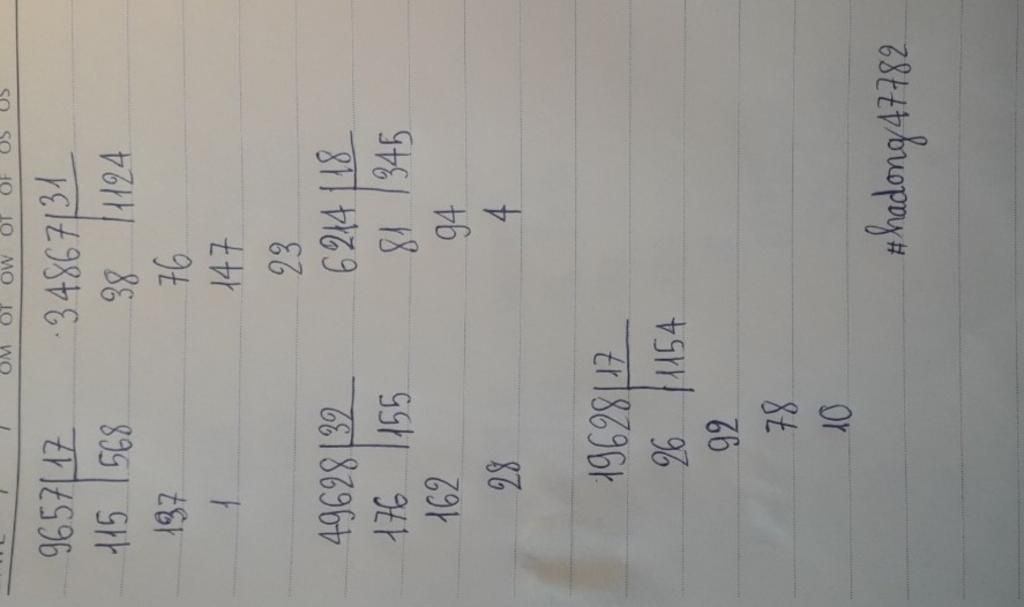 OM OT OW OT OF OS OS
9657 17 .34867 31
115 568 38 1124
137 76
1 147
23
49628 32 6214 18
176 155 81 345
162 94
28 4
19628 17
26 1154
92
78
10
#hadong47782